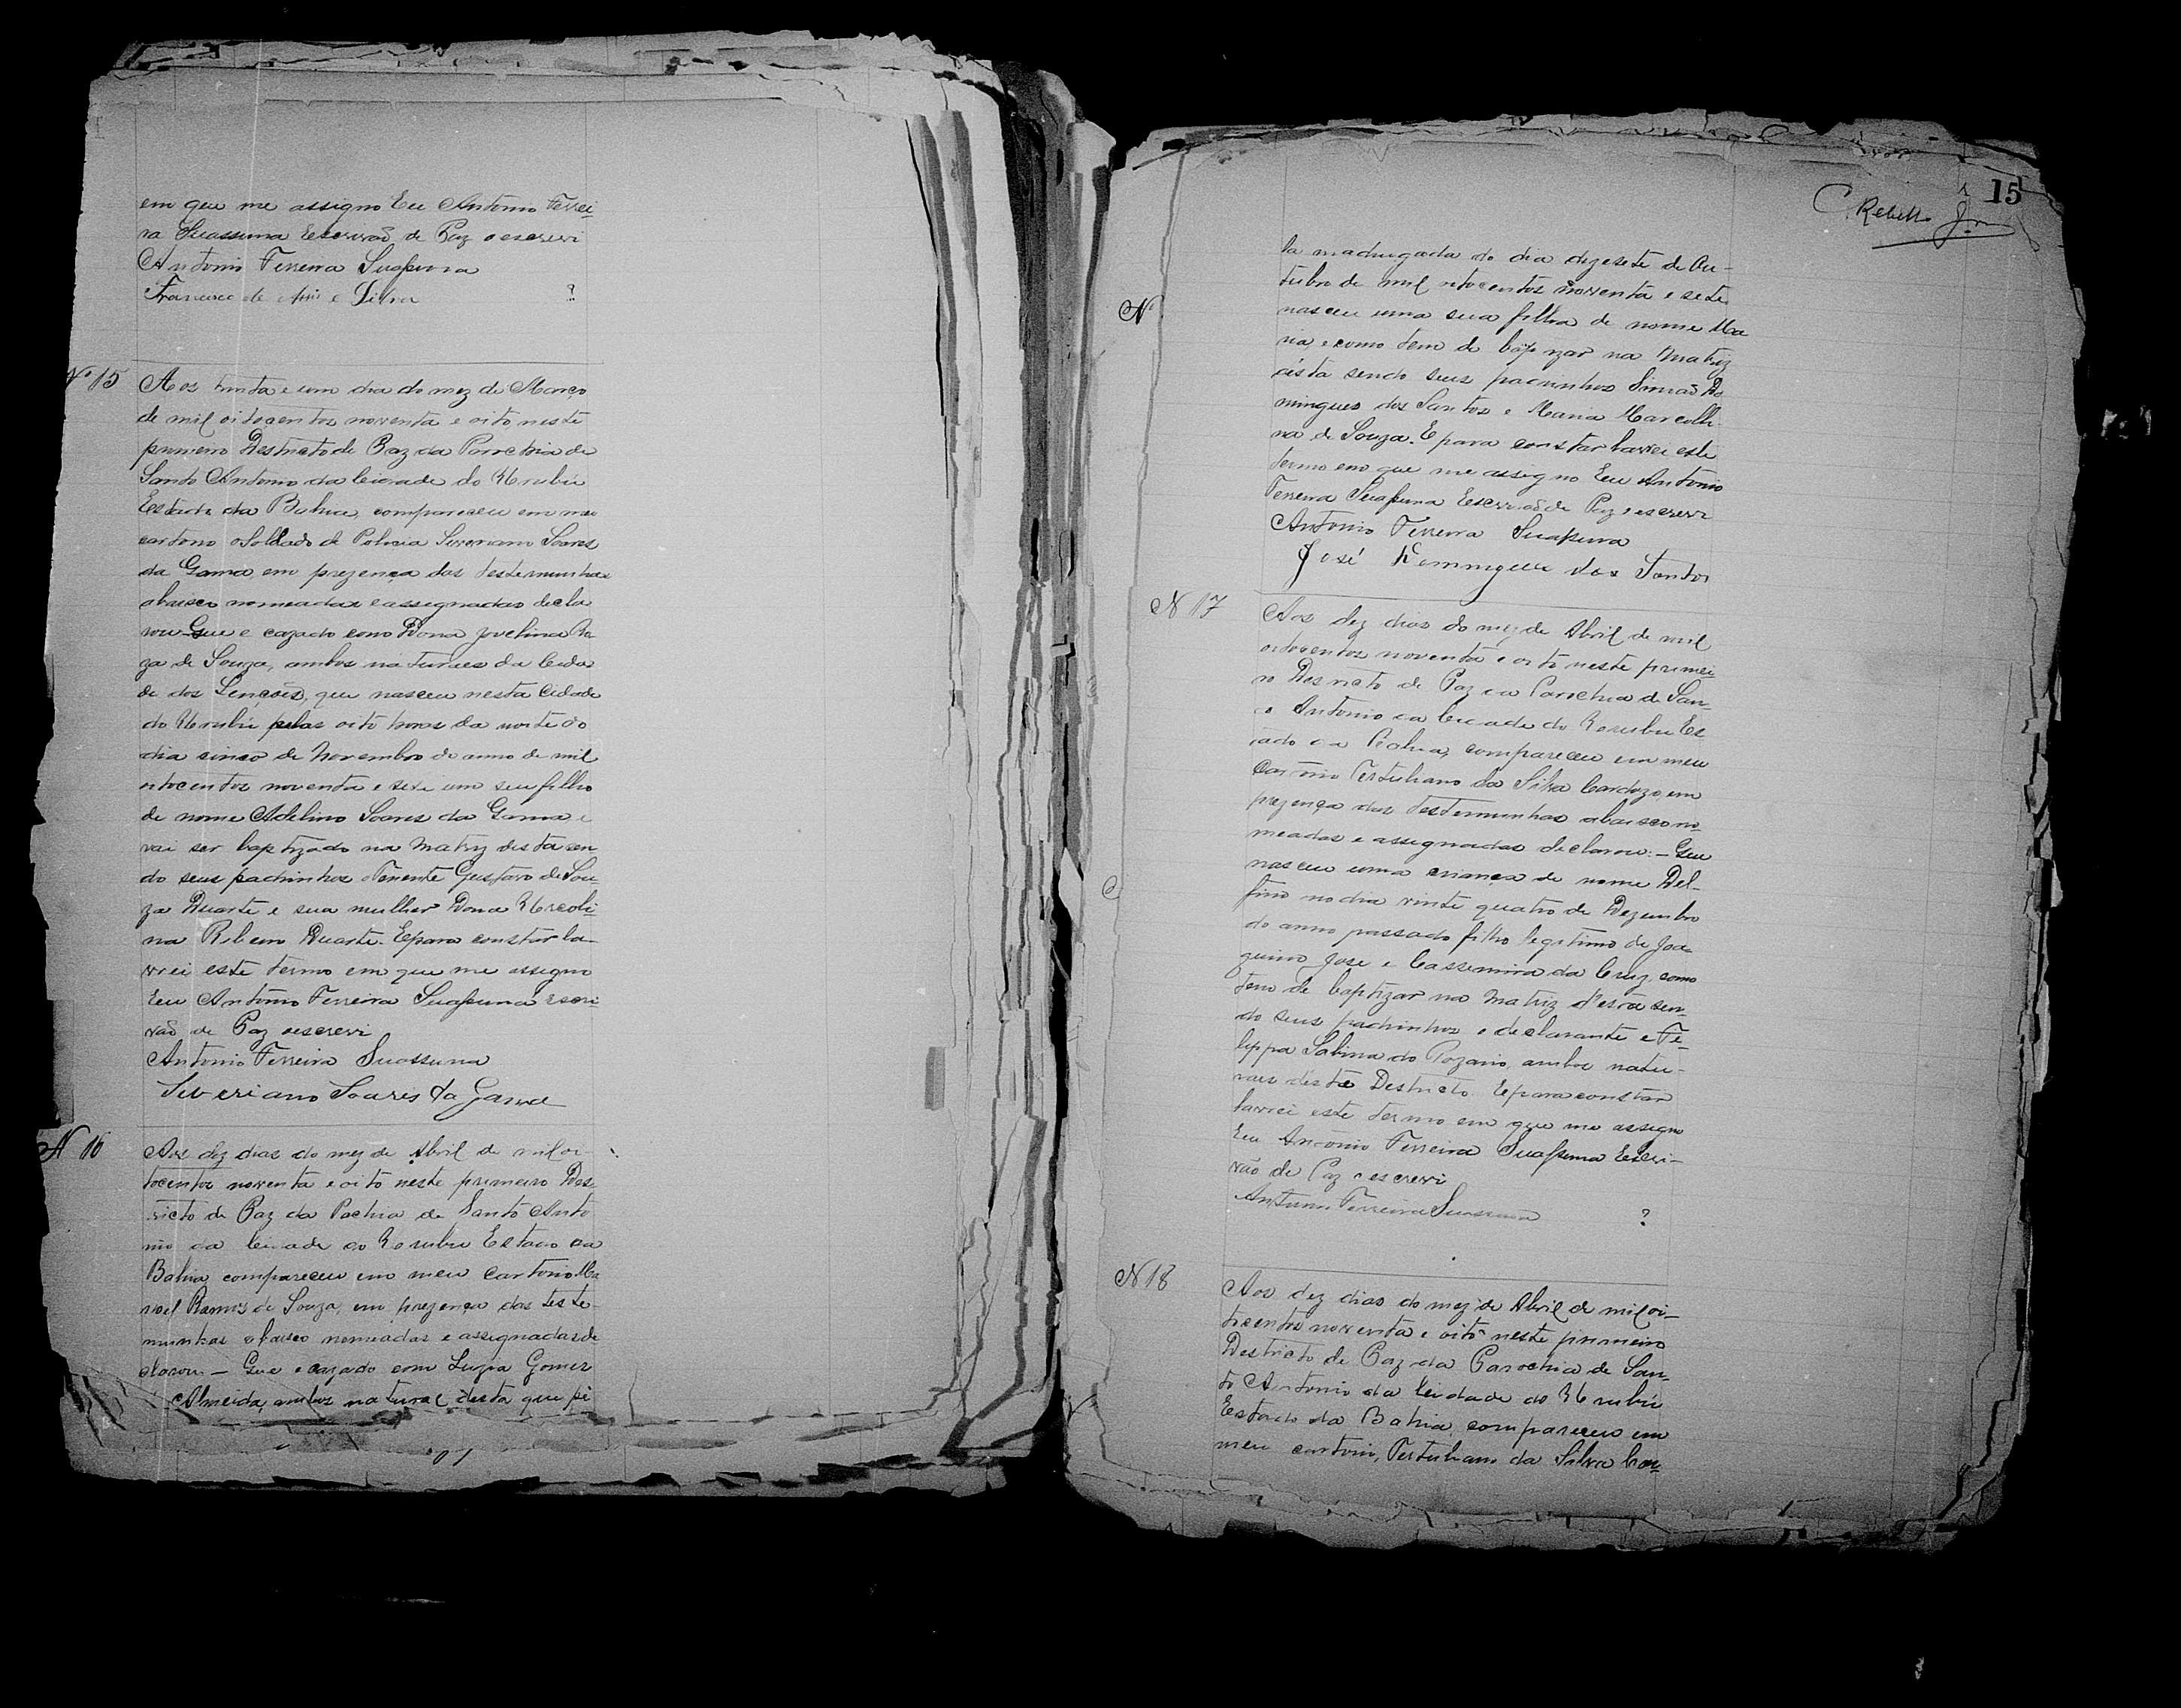 em que me assigno Eu Antonio Ferrei-
ra Suassuna Escrivaõ de Paz o escrevi
Antonio Ferreira Suassuna
Francisco de Assis e Silva ?
Nº 15
Aos trinta e um dia do mez de Março
de mil oitocentos noventa e oito neste
primeiro Destricto de Paz da Parochia de
Santo Antonio da Cidade do Urubú
Estado da Bahia, compareceu em meu
cartorio o Soldado de Policia Severiano Soares
da Gama, em prezença das testemunhas
abaixo nomeadas e assignadas decla
rou – Que e cazado com Dona Jovelina
za de Souza, ambos naturaes da Cida
de dos Lençoes, que nasceu nesta Cidade
do Urubú pelas oito horas da noite do
dia sinco de Novembro do anno de mil
oitocentos noventa e sete um seu filho
de nome Adelino Soares da Gama e
vai ser baptizado na Matriz desta sen
do seus padrinhos o Tenente Gustavo de Sou-
za Duarte e sua mulher Dona Urcoli-
na Ribeiro Duarte. E para constar la-
vrei este termo em que me assigno
Eu Antonio Ferreira Suassuna escri
vaõ de Paz o escrevi
Antonio Ferreira Suassuna
Severiano Soares da Gama
N 16
Aos dez dias do mez de Abril de mil oi-
tocentos noventa e oito neste primeiro Des
tricto de Paz da Pachia de Santo Anto
nio da Cidade do Urubu Estado da
Bahia compareceu em meu Cartorio Ma
noel Ramos de Souza, em prezença das teste-
munhas abaixo nomeadas e assignadas de
clarou – Que e cazado com Luzia Gomes
Almeida, ambos natural desta que pe
15
C. Rebello Jor
la madrugada do dia dezesete de Ou-
tubro de mil oitocentos noventa e sete
Nº
nasceu uma sua filha de nome Ma
ria e como tem de bapizar na Matriz
désta sendo seus padrinhos Simaõ Do
mingues dos Santos e Maria Marcolli-
na de Souza. E para constar lavrei este
termo em que me assigno Eu Antonio
Ferreira Suassuna Escrivaõ de Paz o escrevi
Antonio Ferreira Suassuna
José Domingues dos Santos
N 17
Aos dez dias do mez de Abril de mil
oitocentos noventa e oito neste primei
ro Destricto de Paz da Parochia de San-
to Antonio da Cidade do Urubu Es
tado da Bahia, compareceu em meu
Cartorio Tertuliano da Silva Cardozo, em
prezença das testemunhas abaixo no-
meadas e assignadas declarou: – Que
nasceu uma criança de nome Del-
fino no dia vinte quatro de Dezembro
do anno passado filho legitimo de Joa-
quim Jose e Cassemira da Cruz, como
tem de baptizar na Matriz d'esta sen-
do seus padrinhos o declarante e Fe-
lippa Sabina do Rozario, ambos natu-
raes déste Destricto. E para constar
lavrei este termo em que me assigno
Eu Antonio Ferreira Suassuna Escri-
vão de Paz o escrevi
Antonio Ferreira Suassuna ?
N 18
Aos dez dias do mez de Abril de mil oi-
tocentos noventa e oito neste primeiro
Destricto de Paz da Parochia de San-
to Antonio da Cidade do Urubú
Estado da Bahia, compareceu em
meu cartorio, Tertuliano da Silva Car-